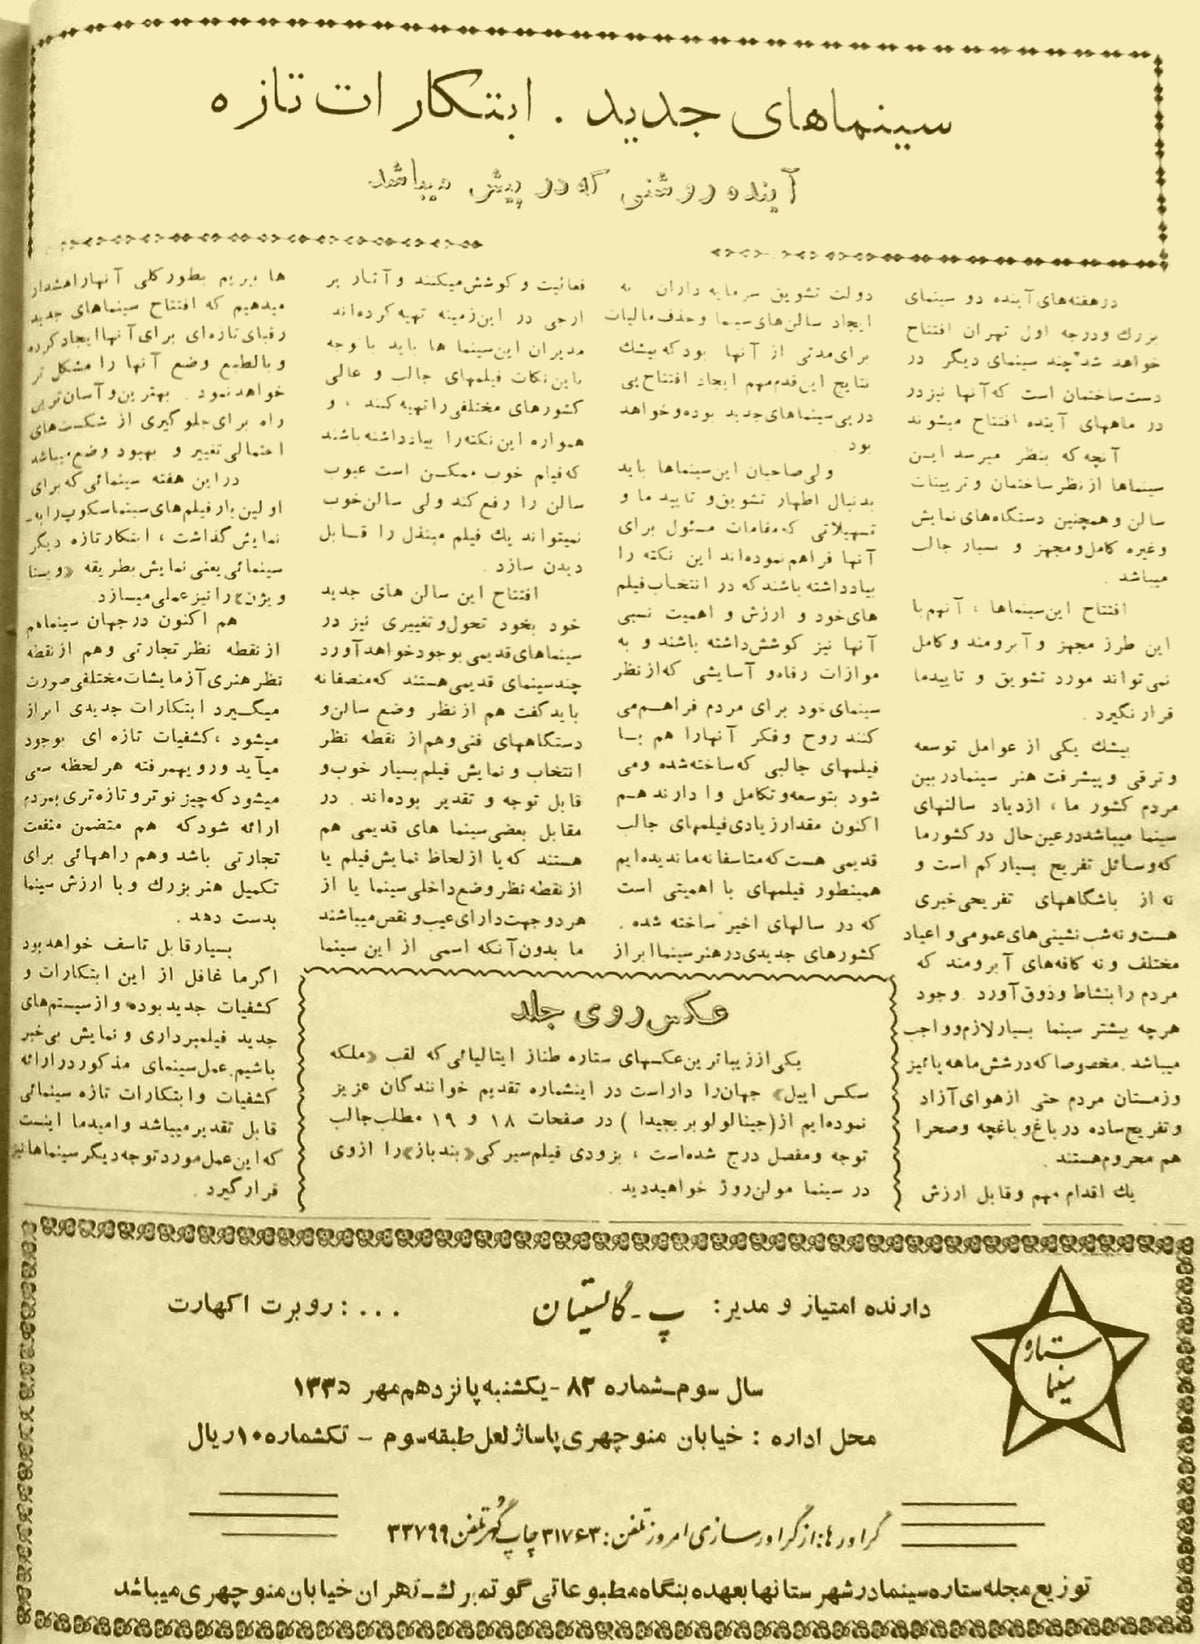 سینماهای جدید . ابتکارات تازه
آینده روشنی که در پیش میباشد
درهفته‌های آینده دو سینمای
بزرك و درجه اول تهران افتتاح
خواهد شد چند سینمای دیگر در
دست ساختمان است که آنها نیز در
در ماههای آینده افتتاح میشوند
آنچه که بنظر میرسد این
سینماها از نظر ساختمان و تزیینات
سالن و همچنین دستگاه‌های نمایش
و غیره کامل و مجهز و بسیار جالب
میباشد .
افتتاح این سینماها ، آنهم با
این طرز مجهز و آبرومند و کامل
نمی‌تواند مورد تشویق و تایید ما
قرار نگیرد .
بیشك یکی از عوامل توسعه
و ترقی و پیشرفت هنر سینما در بین
مردم کشور ما ، ازدیاد سالنهای
سینما میباشد در عین حال در کشور ما
که وسائل تفریح بسیار کم است و
نه از باشگاههای تفریحی خبری
هست و نه شب نشینی‌های عمومی و اعیاد
مختلف و نه کافه‌های آبرومند که
مردم را بنشاط و ذوق آورد . وجود
هرچه بیشتر سینما بسیار لازم و واجب
میباشد . مخصوصا که در شش ماهه پائیز
و زمستان مردم حتی از هوای آزاد
و تفریح ساده در باغ و باغچه و صحرا
هم محروم هستند .
یك اقدام مهم و قابل ارزش
دولت تشویق سرمایه داران به
ایجاد سالن‌های سینما و حذف مالیات
برای مدتی از آنها بود که بیشك
نتایج این قدم مهم ایجاد افتتاح پی
در پی سینماهای جدید بوده و خواهد
بود
ولی صاحبان این سینماها باید
بدنبال اظهار تشویق و تایید ما و
تسهیلاتی که مقامات مسئول برای
آنها فراهم نموده‌اند این نکته را
بیاد داشته باشند که در انتخاب فیلم
های خود و ارزش و اهمیت نسبی
آنها نیز کوشش داشته باشند و به
موازات رفاه و آسایشی که از نظر
سینمای خود برای مردم فراهم می
کنند روح و فکر آنها را هم با
فیلمهای جالبی که ساخته شده و می
شود بتوسعه و تکامل وا دارند هم
اکنون مقدار زیادی فیلمهای جالب
قدیمی هست که متاسفانه ما ندیده‌ایم
همینطور فیلمهای با اهمیتی است
که در سالهای اخیر ساخته شده .
کشورهای جدیدی در هنر سینما ابراز
فعالیت و کوشش میکنند و آثار پر
ارجی در این زمینه تهیه کرده‌اند
مدیران این سینما ها باید با توجه
باین نکات فیلمهای جالب و عالی
کشورهای مختلفی را تهیه کنند ، و
همواره این نکته را بیاد داشته باشند
که فیلم خوب ممکن است عیوب
سالن را رفع کند ولی سالن خوب
نمیتواند یك فیلم مبتذل را قابل
دیدن سازد .
افتتاح این سالن های جدید
خود بخود تحول و تغییری نیز در
سینماهای قدیمی بوجود خواهد آورد
چند سینمای قدیمی هستند که منصفانه
باید گفت هم از نظر وضع سالن و
دستگاههای فنی و هم از نقطه نظر
انتخاب و نمایش فیلم بسیار خوب و
قابل توجه و تقدیر بوده‌اند . در
مقابل بعضی سینما های قدیمی هم
هستند که یا از لحاظ نمایش فیلم یا
از نقطه نظر وضع داخلی سینما یا از
هر دو جهت دارای عیب و نقص میباشند
ما بدون آنکه اسمی از این سینما
ها ببریم بطور کلی آنها را هشدار
میدهیم که افتتاح سینماهای جدید
رقبای تازه‌ای برای آنها ایجاد کرده
و بالطبع وضع آنها را مشکل تر
خواهد نمود . بهترین و آسان ترین
راه برای جلوگیری از شکست‌های
احتمالی تغییر و بهبود وضع میباشد
در این هفته سینمائی که برای
اولین بار فیلم‌های سینما سکوپ را به
نمایش گذاشت ، ابتکار تازه دیگر
سینمائی یعنی نمایش بطریقه «ویستا
ویژن» را نیز عملی میسازد .
هم اکنون در جهان سینما هم
از نقطه نظر تجارتی و هم از نقطه
نظر هنری آزمایشات مختلفی صورت
میگیرد ابتکارات جدیدی ابراز
میشود ، کشفیات تازه ای بوجود
میآید و رویهمرفته هر لحظه سعی
میشود که چیز نوتر و تازه تری بمردم
ارائه شود که هم متضمن منفعت
تجارتی باشد و هم راههائی برای
تکمیل هنر بزرك و با ارزش سینما
بدست دهد .
بسیار قابل تاسف خواهد بود
اگر ما غافل از این ابتکارات و
کشفیات جدید بوده و از سیستم‌های
جدید فیلمبرداری و نمایش بی خبر
باشیم . عمل سینمای مذکور در ارائه
کشفیات و ابتکارات تازه سینمائی
قابل تقدیر میباشد و امید ما اینست
که این عمل مورد توجه دیگر سینماها نیز
قرار گیرد .
عکس روی جلد
یکی از زیباترین عکسهای ستاره طناز ایتالیائی که لقب «ملکه
سکس اپیل» جهان را داراست در اینشماره تقدیم خوانندگان عزیز
نموده‌ایم از (جینا لولو بریجیدا ) در صفحات ۱۸ و ۱۹ مطلب جالب
توجه و مفصل درج شده است ، بزودی فیلم سیرکی «بندباز» را از وی
در سینما مولن روژ خواهید دید .
ستاره سینما
دارنده امتیاز و مدیر: پ - گالستیان . . . : روبرت اکهارت
سال سوم - شماره ۸۲ - یکشنبه پانزدهم مهر ۱۳۳۵
محل اداره : خیابان منوچهری پاساژ لعل طبقه سوم - تکشماره ۱۰ ریال
گراورها: از گراور سازی امروز تلفن: ۳۱۷۶۳ چاپ گهر تلفن ۳۳۷۹۹
توزیع مجله ستاره سینما در شهرستانها بعهده بنگاه مطبوعاتی گوتمبرك - تهران خیابان منوچهری میباشد